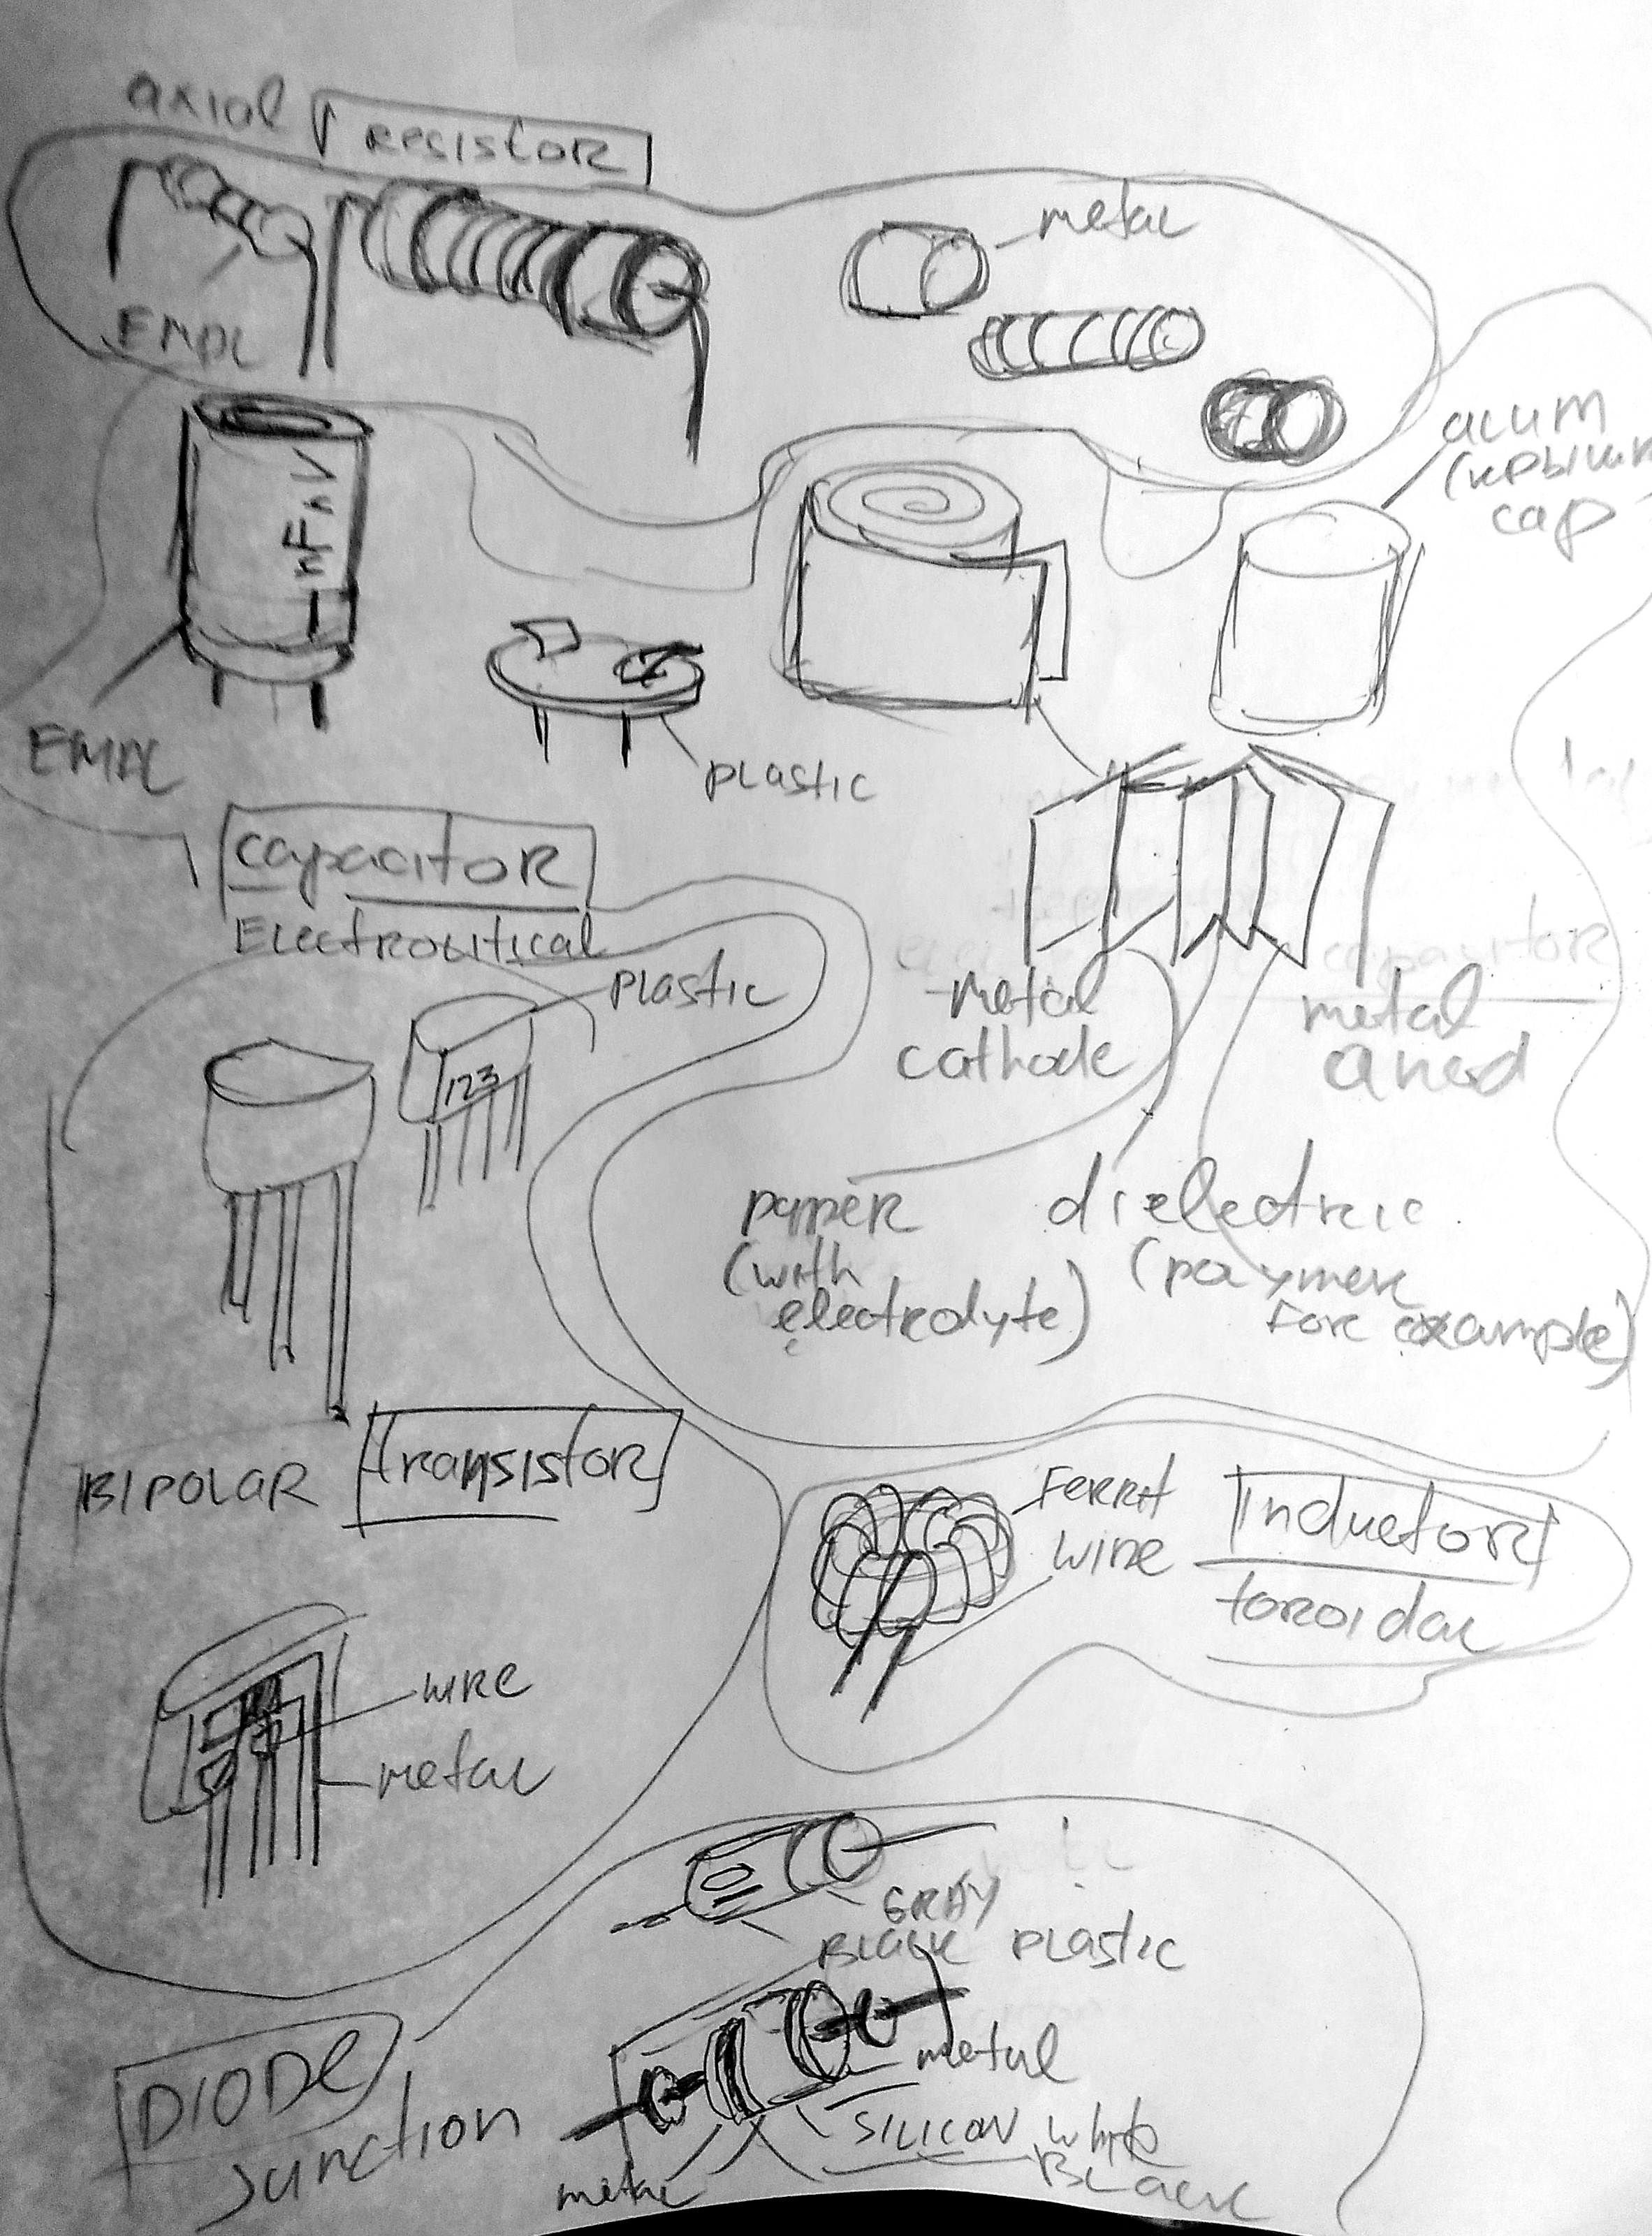 axial
RESISTOR
metal
nFnV
acum
cap
plastic
capacitor
Electrolitical
plastic
metal
cathode
metal
anod
123
paper
(with
electrolyte)
dielectric
(polymer
for example)
BIPOLAR
transistor
Ferrit
wire
Inductor
toroidal
wire
metal
GRAY
Black plastic
metal
SILICON white
Black
metal
DIODE
Junction